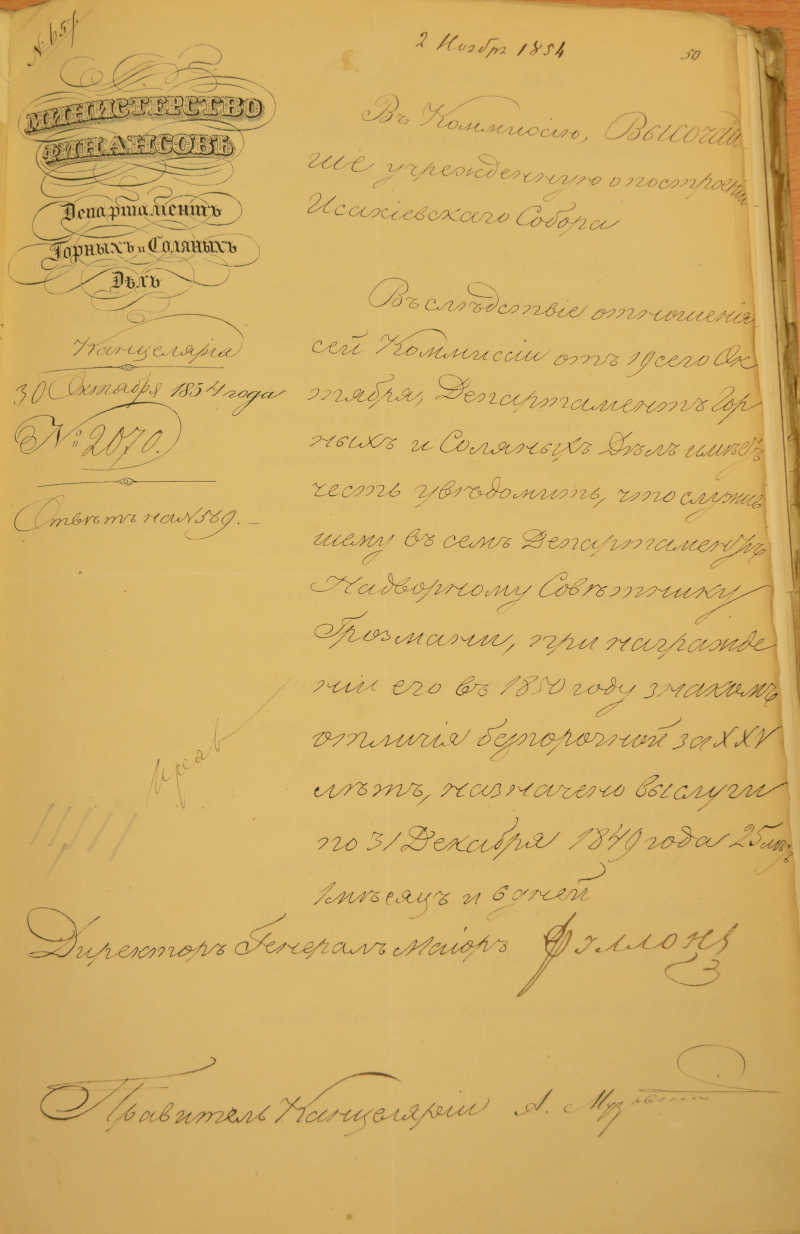 № 657.
2 Ноября 1854
50
МИНИСТЕРСТВО
ФИНАНСОВЪ
Департаментъ
Горныхъ и Соляныхъ
Дѣлъ
Канцелярія
30 Октября 1854 года
№ 2070.
Отвѣтъ на № 569.
Въ Коммисію, Высочай
ше учрежденную о построеніи
Исакіевскаго Собора
Въ слѣдствіе отношенія
сей Коммиссіи отъ 19 сего Ок
тября, Департаментъ Гор
ныхъ и Соляныхъ Дѣлъ имѣетъ
честь увѣдомить, что служив
шему въ семъ Департаментѣ
Надворному Совѣтнику
Грозманни, при награжде
ніи его въ 1850 году знакомъ
отличія безпорочной за XXV
лѣтъ, назначено выслуги
по 31 Декабря 1849 года 25 лѣтъ
1 мѣсяцъ и 6 дней
Директоръ Генералъ Маіоръ
Правитель Канцеляріи А.